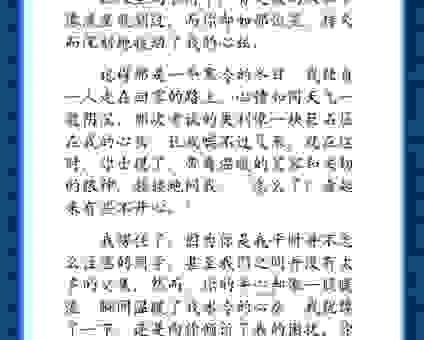 而深刻地拨动了我的心弦。
记得那是一个寒冷的冬日，我独自
一人走在回家的路上，心情如同天气一
般阴沉。那次考试的失利像一块巨石压
在我的心头，让我喘不过气来。就在这
时，你出现了，带着温暖的笑容和关切
的眼神，轻轻地问我：“怎么了？看起
来有些不开心。”
我愣住了，因为你是我平时并不怎
么注意的同学，甚至我们之间并没有太
多的交集。然而，你的关心却像一股暖
流，瞬间温暖了我冰冷的心房。我犹豫
了一下，还是向你倾诉了我的困扰。你